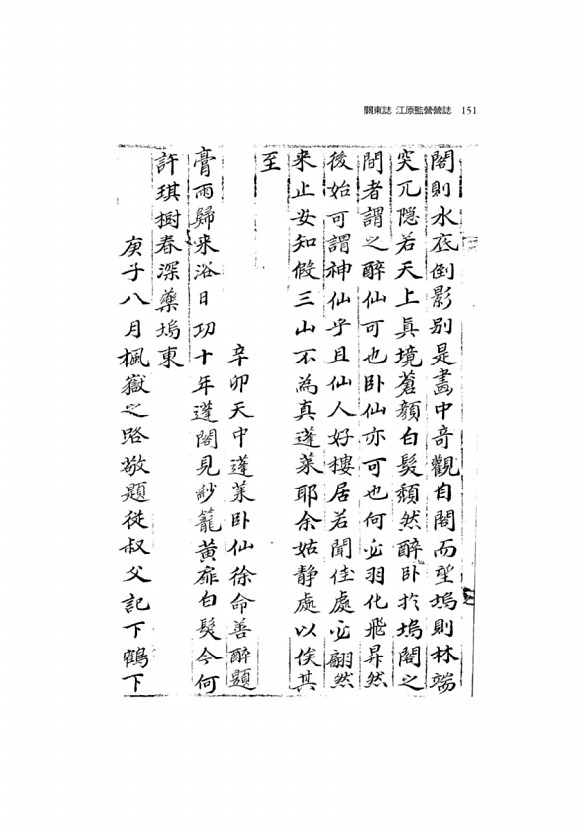 關東誌 江原監營營誌 151
閣則水底倒影別是畵中奇觀自閣而望塢則林端
突兀隐若天上眞境蒼顏白髮頹然醉卧於塢閣之
間者謂之醉仙可也卧仙亦可也何必羽化飛昇然
後始可謂神仙乎且仙人好樓居若聞佳處必翩然
来止安知假三山不為真蓬萊耶余姑静處以俟其
至
辛卯天中蓬萊卧仙徐命善醉題
膏雨歸来浴日功十年蓬閣見紗籠黃扉白髮今何
許琪樹春深藥塢東
庚子八月楓嶽之路敬題從叔父記下鶴下